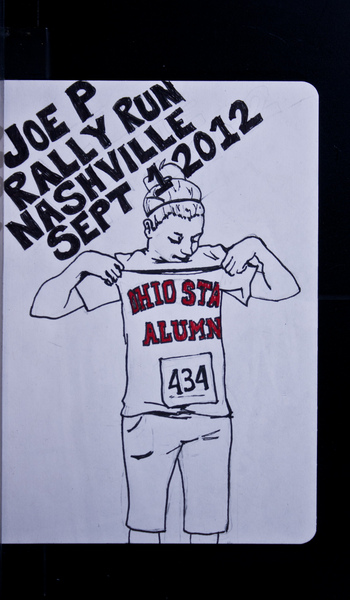 JOE P
RALLY RUN
NASHVILLE
SEPT 1 2012
OHIO STA
ALUMN
434